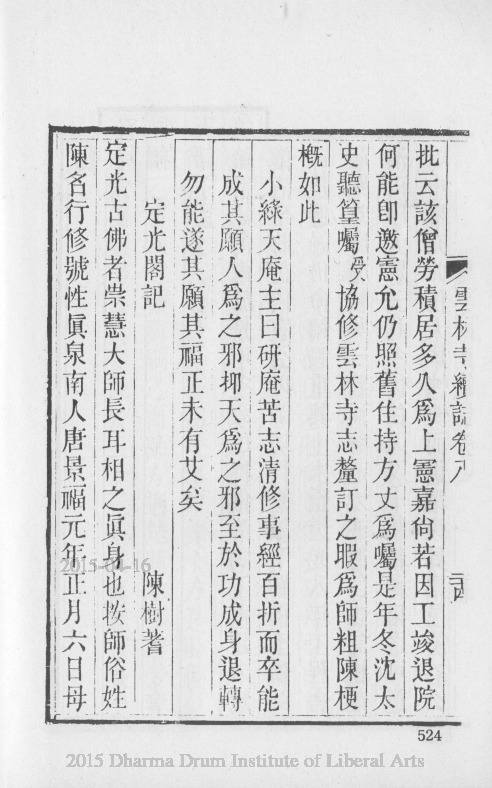 雲林寺續誌卷八
二十四
批云該僧勞積居多久爲上憲嘉尙若因工竣退院
何能卽邀憲允仍照舊住持方丈爲囑是年冬沈太
史聽篁囑受協修雲林寺志釐訂之暇爲師粗陳梗
槪如此
小綠天庵主曰硏庵苦志清修事經百折而卒能
成其願人爲之邪抑天爲之邪至於功成身退轉
勿能遂其願其福正未有艾矣
定光閣記
陳樹蓍
定光古佛者崇慧大師長耳相之眞身也按師俗姓
陳名行修號性眞泉南人唐景福元年正月六日母
524
2015-04-16
2015 Dharma Drum Institute of Liberal Arts